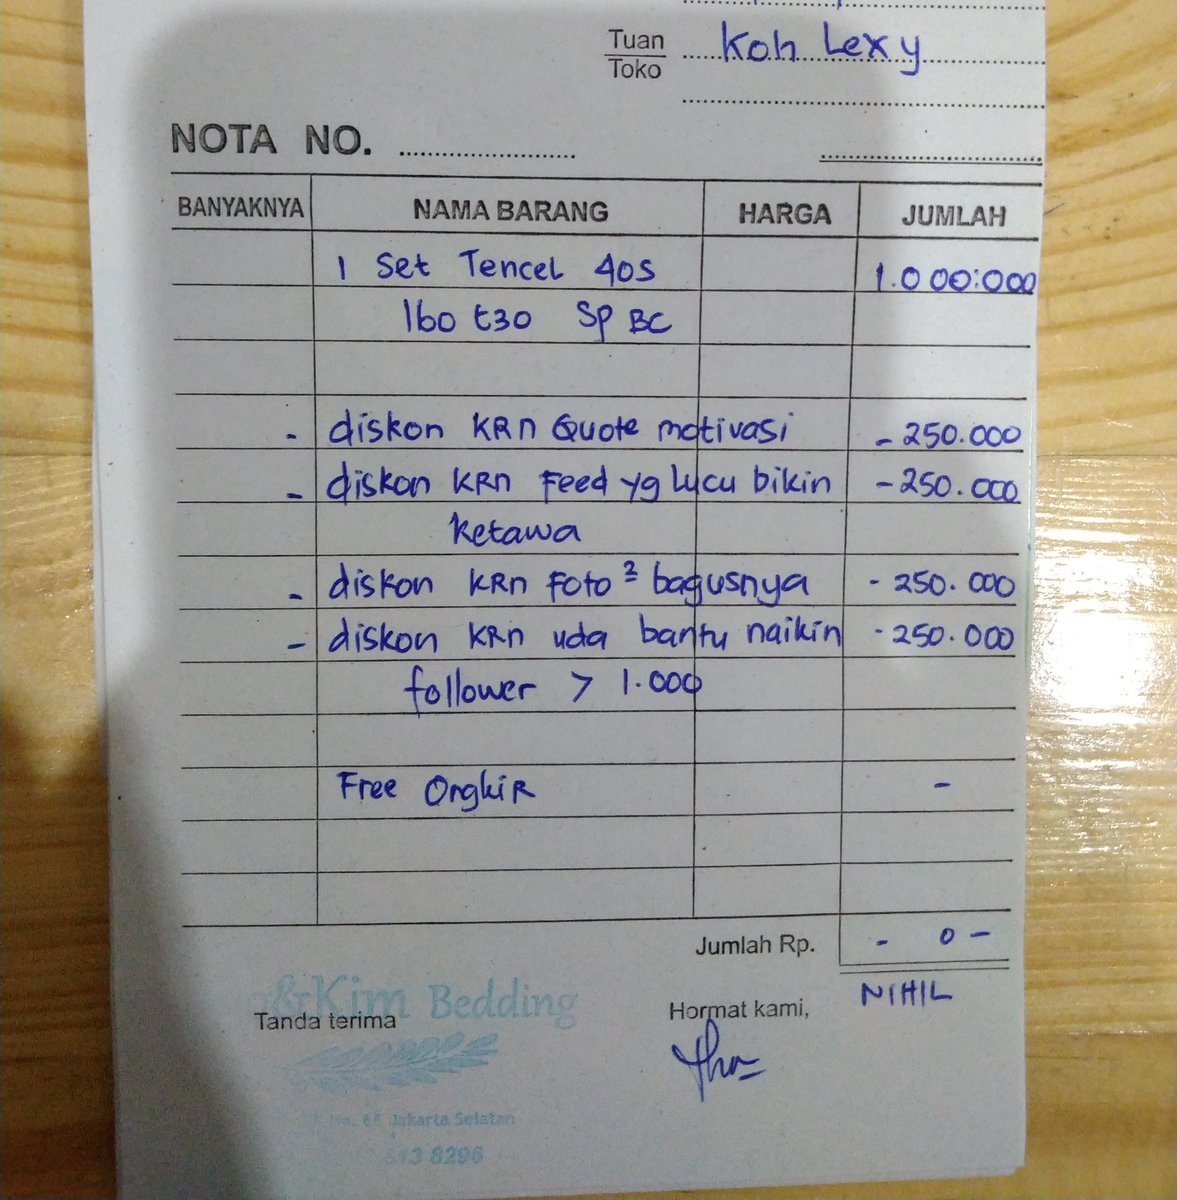 Tuan
Toko
Koh Lexy
NOTA NO.
BANYAKNYA NAMA BARANG HARGA JUMLAH
1 Set Tencel 40S 1.000:000
160 t30 Sp BC
- diskon KRn Quote motivasi - 250.000
- diskon KRn Feed yg lucu bikin - 250.000
ketawa
- diskon KRn Foto ² bagusnya - 250.000
- diskon KRn uda bantu naikin - 250.000
follower > 1.000
Free Ongkir -
Jumlah Rp. - 0 -
NIHIL
&Kim Bedding
Tanda terima Hormat kami,
No. 64 Jakarta Selatan
813 8296